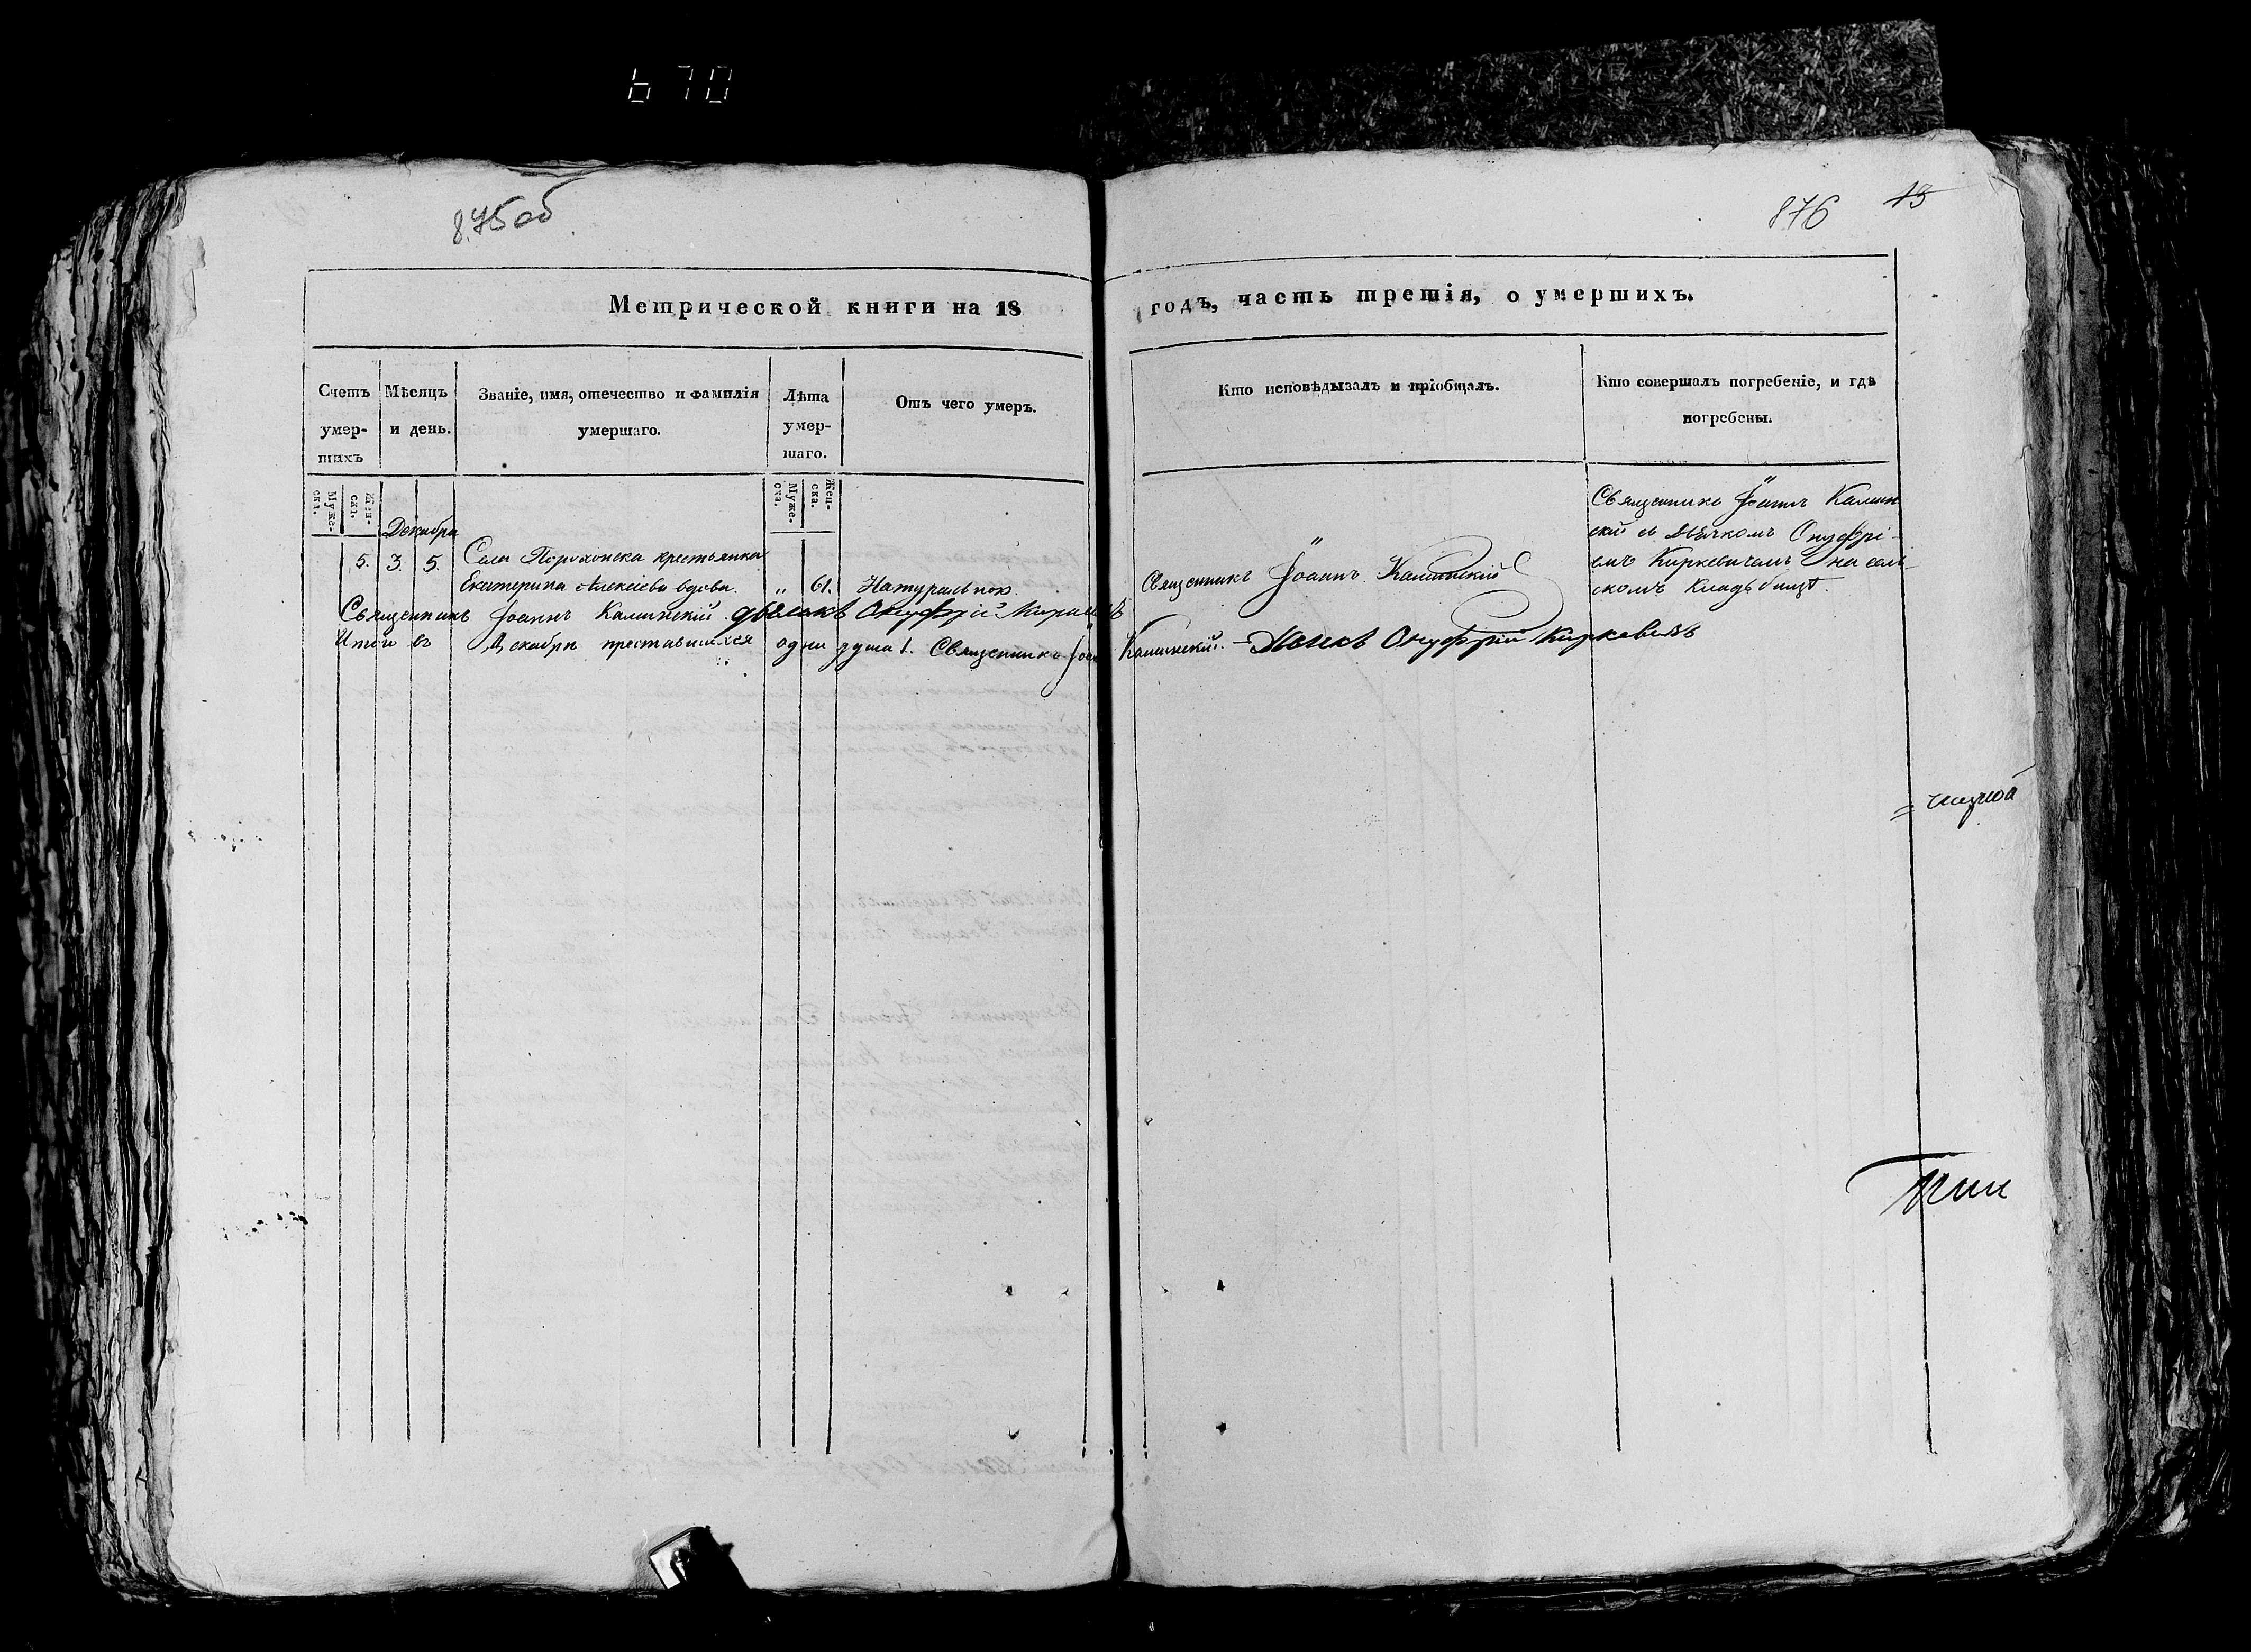 670
875 об
876 13
Метрической книги на 18 годъ, часть третія, о умершихъ.
Счетъ умер-шихъ
Мѣсяцъ и день.
Званіе, имя, отечество и фамилія умершаго.
Лѣта умер-шаго.
Отъ чего умеръ.
Кто исповѣдывалъ и пріобщалъ.
Кто совершалъ погребеніе, и гдѣ погребены.
Муже-ска.
Жен-ска.
Муже-ска.
Жен-ска.
Декабря
5. 3. 5. Села Порохонска крестьянка
Екатерина Алексіева вдова. „ 61. Натурально.
Священникъ Іоаннъ Калинскій
Священникъ Іоаннъ Калин
скій съ Дьячкомъ Онуфрі-
емъ Киркевичемъ на сель-
скомъ кладьбищѣ.
Священникъ Іоаннъ Калинскій. дьячокъ Онуфрій
Итого въ Декабрѣ преставишхся одна душа 1. Священникъ Іоан Калинскій. Дьячкъ Онуфрій Киркевичъ